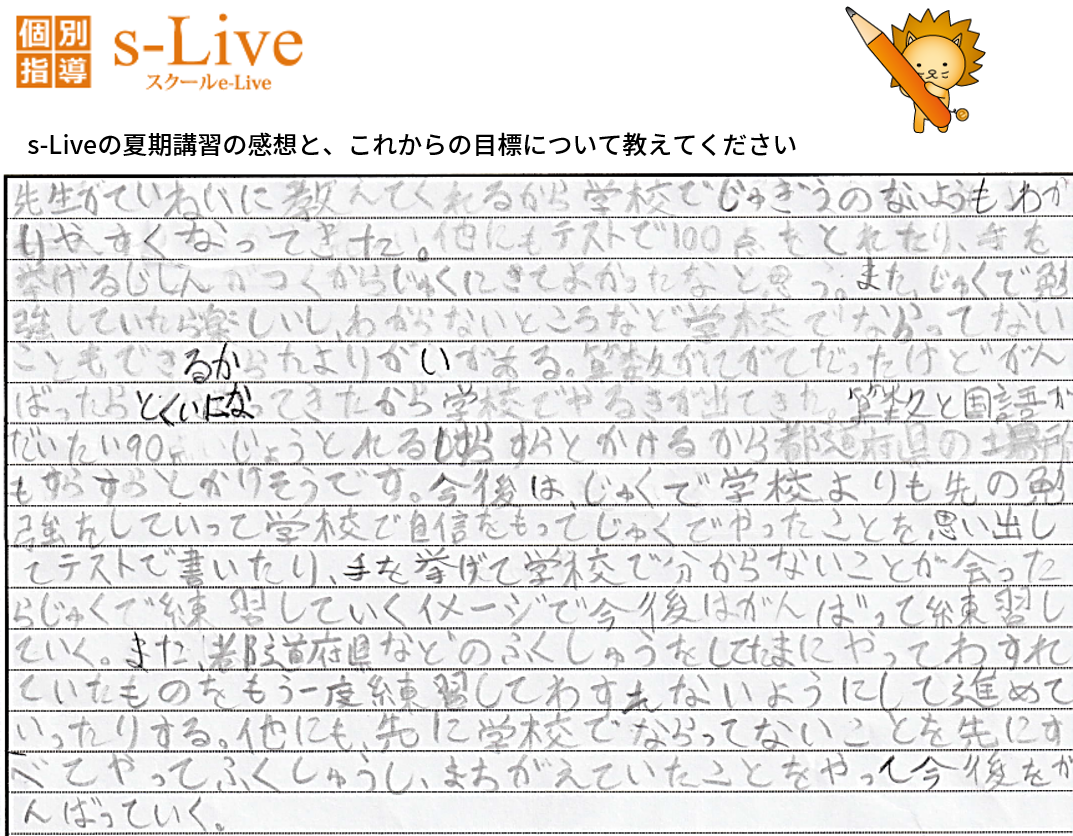 個別
指導
s-Live
スクールe-Live
s-Liveの夏期講習の感想と、これからの目標について教えてください
先生がていねいに教えてくれるから学校でじゅぎうのないようもわか
りやすくなってきた。他にもテストで100点をとれたり、手を
挙げるじしんがつくからじゅくにきてよかったなと思う。また、じゅくで勉
強していたら楽しいし、わからないところなど学校でならってない
こともできるからたよりがいがある。算数がにがてだったけどがん
ばったらとくいになてきたから学校でやるきが出てきた。算数と国語が
だいたい90点いじょうとれるしすらすらとかけるから都道府県の場所
もすらすらとかけそうです。今後は、じゅくで学校よりも先の勉
強をしていって学校で自信をもってじゅくでやったことを思い出し
てテストで書いたり、手を挙げて学校で分からないことが会った
らじゅくで練習していくイメージで今後はがんばって練習し
ていく。また、都道府県などのふくしゅうをしてたまにやってわすれ
ていたものをもう一度練習してわすれないようにして進めて
いったりする。他にも、先に学校でならってないことを先にす
べてやってふくしゅうし、まちがえていたことをやって今後をが
んばっていく。